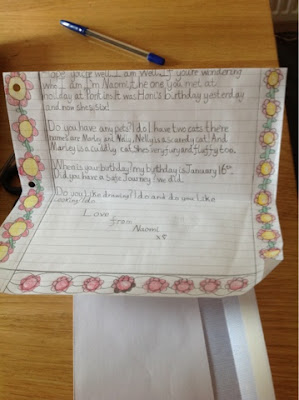 hope you're well I am well. If you're wondering
who I am I'm Naomi, the one you met at
holiday at Pontins. It was Moni's birthday yesterday
and now she's six!
Do you have any pets? I do I have two cats there
names are Marley and Nelly, Nelly is a scaredy cat. And
Marley is a cuddly cat she's very furry and fluffy too.
When is your birthday? my birthday is January 16th.
Did you have a safe journey? we did.
Do you like drawing? I do and do you like
cooking? I do.
Love
from
Naomi